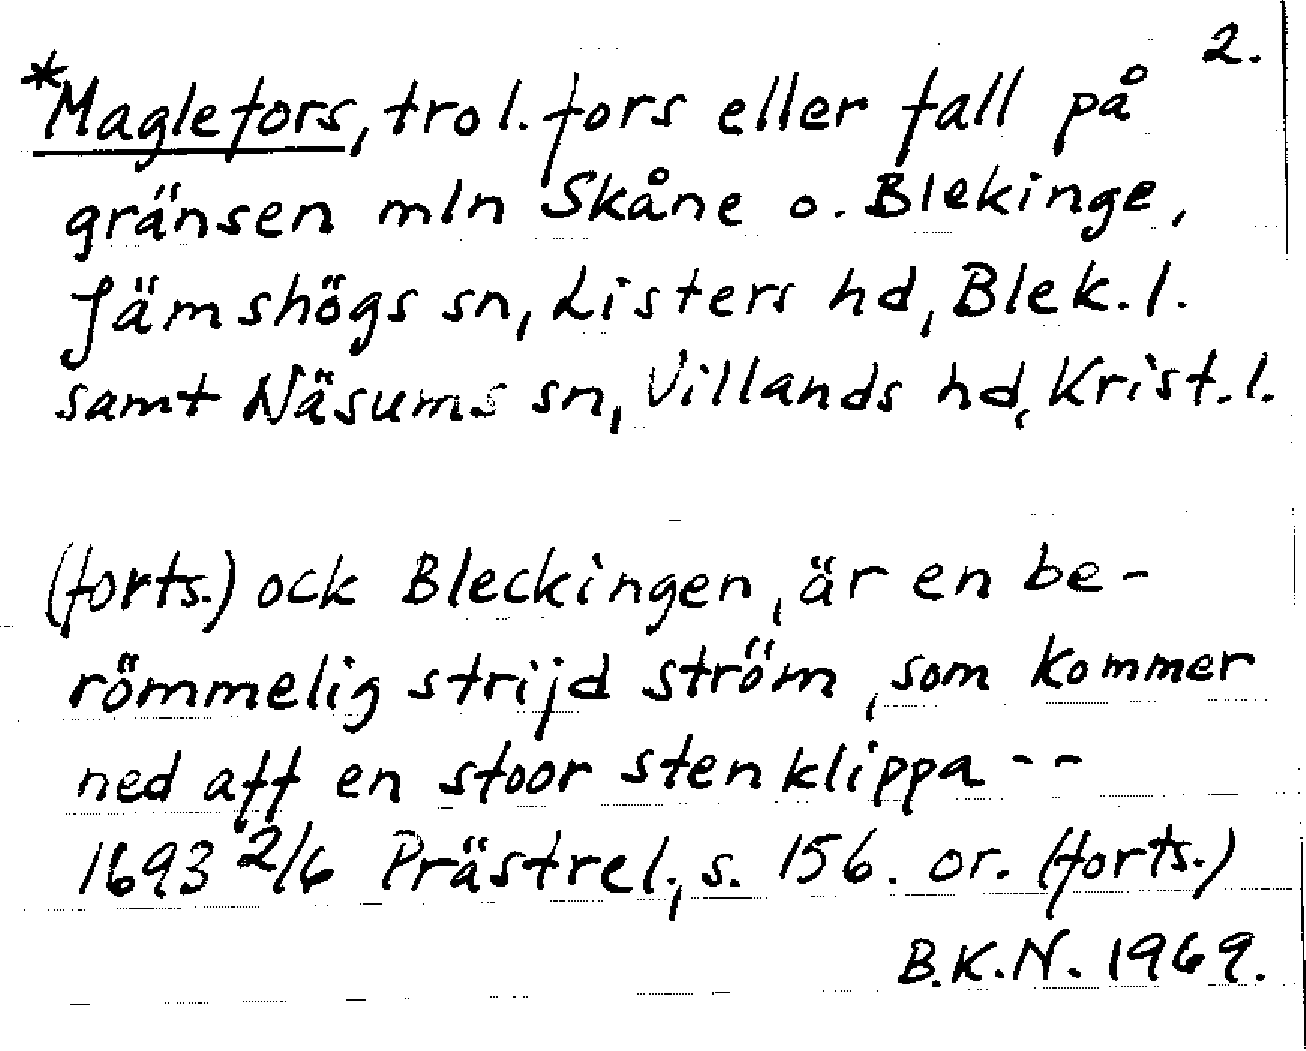 2.
*Maglefors, trol. fors eller fall på
gränsen mln Skåne o. Blekinge,
Jämshögs sn, Listers hd, Blek. l.
samt Näsums sn, Villands hd, Krist. l.
(forts.) ock Bleckingen, är en be-
römmelig strijd ström, som kommer
ned aff en stoor stenklippa --
1693 2/6 Prästrel., s. 156. or. (forts.)
B.K.N. 1969.